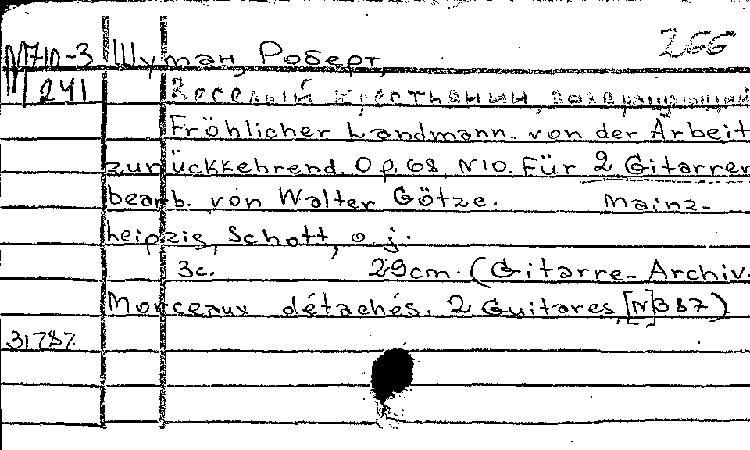 266
М710-3 Шуман, Роберт,
241 Веселый крестьянин, возвращающий
Fröhlicher Landmann von der Arbeit
zurückkehrend. Op. 68, N10. Für 2 Gitarren
bearb. von Walter Götze. Mainz-
Leipzig, Schott, o. j.
3c. 29cm. (Gitarre-Archiv.
Morceaux détachés. 2 Guitares, [N]387)
31787